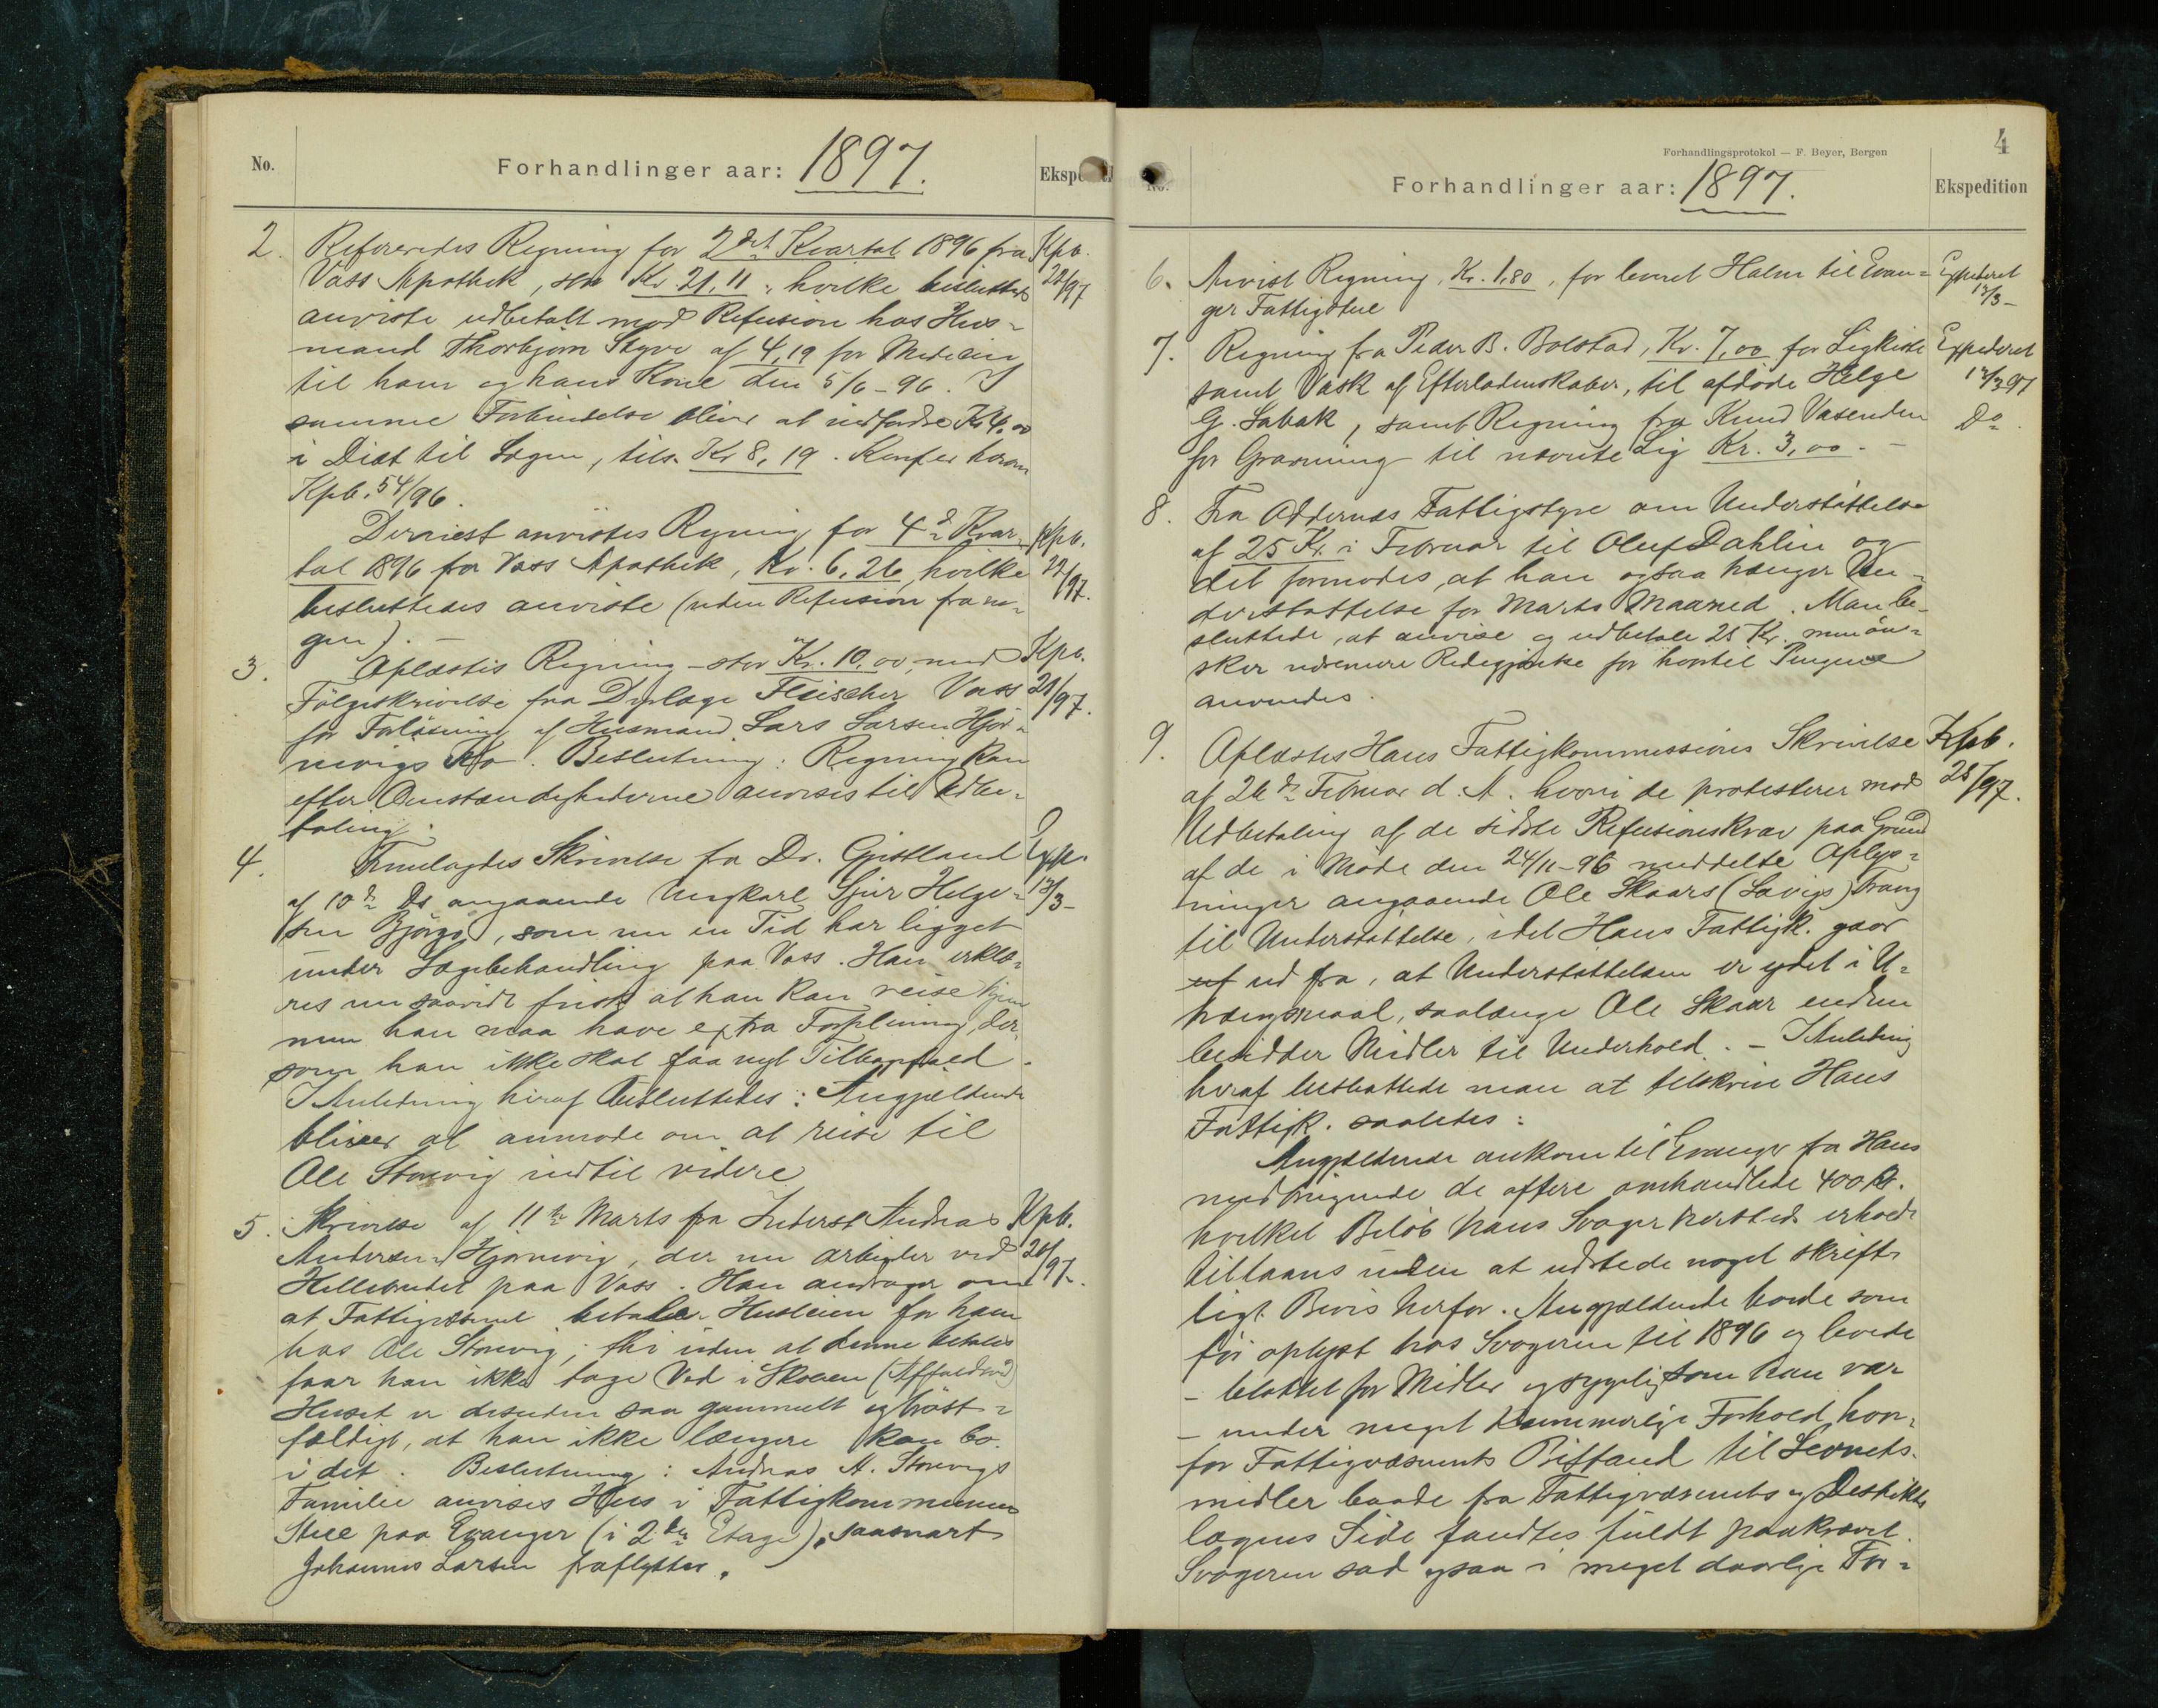 No. Forhandlinger aar: 1897. Eksp
2. Refereredes Regning for 2det Kvartal 1896 fra Kpb.
Voss Apothek, stor Kr. 21,11, hvilke besluttes 22/97
anviste udbetalt mod Refusion hos Hus-
mand Thorbjørn Styve af 4,19 for Medicin
til ham og hans Kone den 5/6-96. I
samme Forbindelse bliver at indfordre Kr 4.00
i Diæt til Lægen, tils. Kr 8,19. Konfer herom
Kpb. 54/96.
Dernæst anvistes Regning for 4de Kvar- Kpb.
tal 1896 fra Voss Apothek, Kr. 6,26, hvilke 22/97.
besluttedes anviste (uden Refusion fra no-
gen). —
3. Oplæstes Regning - stor Kr. 10,00, med Kpb.
Følgeskrivelse fra Dyrlæge Fleischer Voss 21/97.
for Forløsning af Husmand Lars Larsen Hjør-
nevigs Ko. Beslutning: Regning kan
efter Omstændighederne anvises til Udbe-
taling.
4. Fremlagdes Skrivelse fra Dr. Gjestland Exp.
af 10de Ds angaaende Ungkarl Sjur Helge- 12/3-
sen Bjørgo, som nu en Tid har ligget
under Lægebehandling paa Voss. Han erklæ-
res nu saavidt frisk at han kan reise hjem
men han maa have extra Forpleining, der-
som han ikke skal faa nyt Tilbagefald.
I Anledning heraf besluttedes: Angjældende
bliver at anmode om at reise til
Ole Storevig indtil videre
5. Skrivelse af 11te Marts fra Inderst Andreas Kpb.
Andersen Hjørnevig, der nu arbeider ved 20/97.
Hellebrudet paa Voss. Han andrager om
at Fattigvæsenet betaler Husleien for ham
hos Ole Storevig; thi uden at denne betales
faar han ikke tage Ved i Skoven (Affaldsved)
Huset er desuden saa gammelt og brøst-
fældigt, at han ikke længere kan bo
i det. Beslutning: Andreas A. Storevigs
Familie anvises Hus i Fattigkommunens
Stue paa Evanger (i 2den Etage), saasnart
Johannes Larsen fraflytter.
4
Forhandlingsprotokol — F. Beyer, Bergen
No. Forhandlinger aar: 1897. Ekspedition
6. Anvist Regning, Kr. 1,80, for leveret Halm til Evan- Expederet
ger Fattigstue 12/3-
7. Regning fra Peder B. Bolstad, Kr. 7,00 for Ligkiste Expederet
samt Vask af Efterladenskaber, til afdøde Helge 12/3 97
G. Sabak, samt Regning fra Knud Vasenden Do
for Gravning til nævnte Lig Kr. 3,00. —
8. Fra Oddernes Fattigstyre om Understøttelse
af 25 Kr. i Februar til Oluf Dahlin og
det formodes, at han ogsaa trænger Un-
derstøttelse for Marts Maaned. Man be-
sluttede, at anvise og udbetale 25 Kr. men øn-
sker nærmere Redegjørelse for hvortil Pengene
anvendes.
9. Oplæstes Haus Fattigkommissions Skrivelse Kpb.
af 26de Februar d. A. hvori de protesterer mod 28/97.
Udbetaling af de sidste Refusionskrav paa Grund
af de i Møde den 24/11-96 meddelte Oplys-
ninger angaaende Ole Skaars (Lavigs) Trang
til Understøttelse, idet Haus Fattigk. gaar
ut ud fra, at Understøttelsen er ydet i U-
trængsmaal, saalænge Ole Skaar endnu
besidder Midler til Underhold. — I Anledning
heraf besluttede man at tilskrive Haus
Fattigk. saaledes:
Angjældende ankom til Evanger fra Haus
medbringende de oftere omhandlede 400 Kr.
hvilket Beløb hans Svoger hersteds erholdt
tillaans uden at udstede noget skrift-
ligt Bevis herfor. Angjældende boede som
før oplyst hos Svogeren til 1896 og levede
- blottet for Midler og sygelig som han var
- under meget kummerlige Forhold, hvor-
for Fattigvæsenets Bistand til Levnets-
midler baade fra Fattigvæsenets og Distrikts-
lægens Side fandtes fuldt paakrævet.
Svogeren sad ogsaa i meget daarlige For-